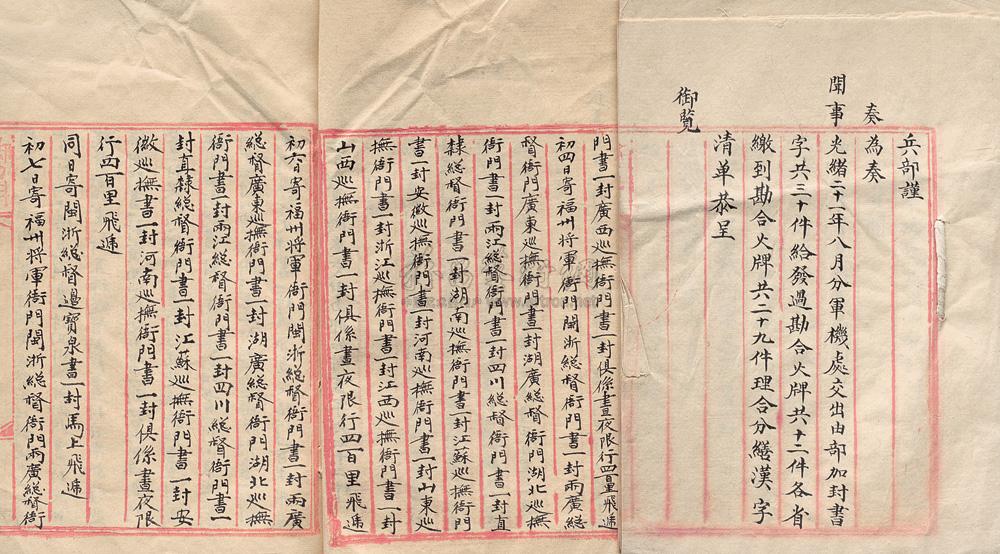 兵部謹
奏為奏
聞事光緒二十一年八月分軍機處交出由部加封書
字共三十件給發過勘合火牌共十二件各省
繳到勘合火牌共二十九件理合分繕漢字
清單恭呈
御覽
門書一封廣西巡撫衙門書一封俱係晝夜限行四百里飛遞
初四日寄福州將軍衙門閩浙總督衙門書一封兩廣總
督衙門廣東巡撫衙門書一封湖廣總督衙門湖北巡撫
衙門書一封兩江總督衙門書一封四川總督衙門書一封直
隸總督衙門書一封湖南巡撫衙門書一封江蘇巡撫衙門
書一封安徽巡撫衙門書一封河南巡撫衙門書一封山東巡
撫衙門書一封浙江巡撫衙門書一封江西巡撫衙門書一封
山西巡撫衙門書一封俱係晝夜限行四百里飛遞
初六日寄福州將軍衙門閩浙總督衙門書一封兩廣
總督廣東巡撫衙門書一封湖廣總督衙門湖北巡撫
衙門書一封兩江總督衙門書一封四川總督衙門書一
封直隸總督衙門書一封江蘇巡撫衙門書一封安
徽巡撫書一封河南巡撫衙門書一封俱係晝夜限
行四百里飛遞
同日寄閩浙總督邊寶泉書一封馬上飛遞
初七日寄福州將軍衙門閩浙總督衙門兩廣總督衙